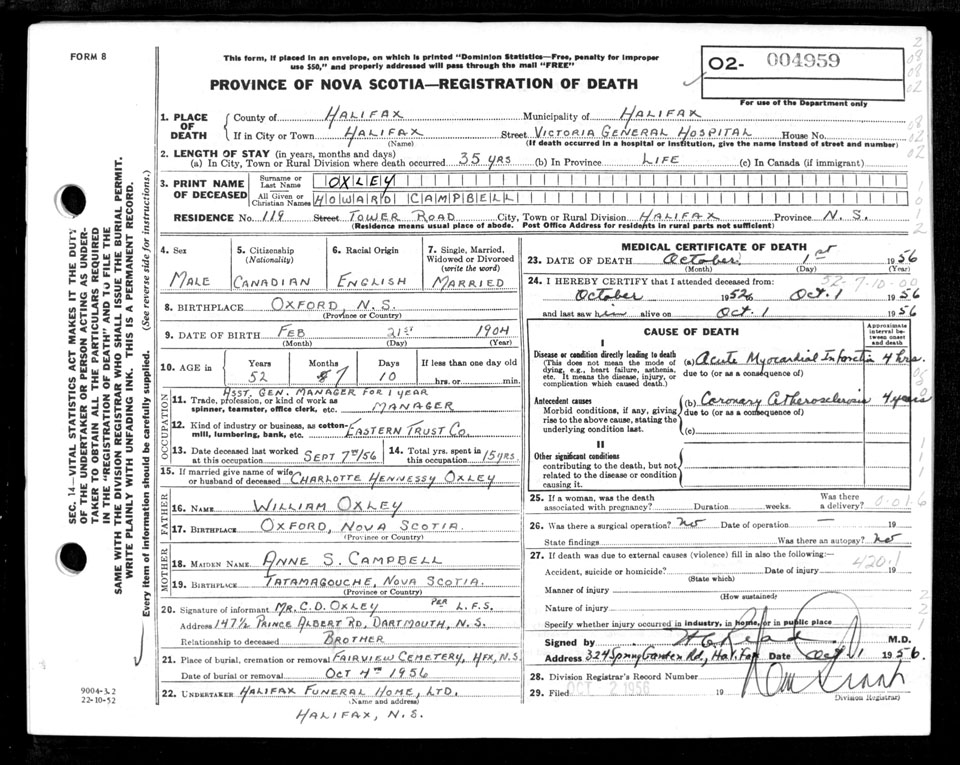 FORM 8
This form, if placed in an envelope, on which is printed "Dominion Statistics—Free, penalty for improper
use $50," and properly addressed will pass through the mail "FREE"
PROVINCE OF NOVA SCOTIA—REGISTRATION OF DEATH
O2- 004959
For use of the Department only
1. PLACE OF DEATH
County of HALIFAX Municipality of HALIFAX
If in City or Town HALIFAX Street VICTORIA GENERAL HOSPITAL House No.
(Name) (If death occurred in a hospital or institution, give the name instead of street and number)
2. LENGTH OF STAY (in years, months and days)
(a) In City, Town or Rural Division where death occurred 35 YRS (b) In Province LIFE (c) In Canada (if immigrant)
3. PRINT NAME OF DECEASED
Surname or Last Name OXLEY
All Given or Christian Names HOWARD CAMPBELL
RESIDENCE No. 119 Street TOWER ROAD City, Town or Rural Division HALIFAX Province N. S.
(Residence means usual place of abode. Post Office Address for residents in rural parts not sufficient)
4. Sex
MALE
5. Citizenship
(Nationality)
CANADIAN
6. Racial Origin
ENGLISH
7. Single, Married,
Widowed or Divorced
(write the word)
MARRIED
8. BIRTHPLACE OXFORD, N.S.
(Province or Country)
9. DATE OF BIRTH FEB 21ST 1904
(Month) (Day) (Year)
10. AGE in
Years Months Days If less than one day old
52 7 10 hrs. or min.
OCCUPATION
ASST. GEN. MANAGER FOR 1 YEAR
11. Trade, profession, or kind of work as
spinner, teamster, office clerk, etc. MANAGER
12. Kind of industry or business, as cotton-
mill, lumbering, bank, etc. EASTERN TRUST CO.
13. Date deceased last worked
at this occupation SEPT 7TH/56
14. Total yrs. spent in
this occupation 15 YRS.
15. If married give name of wife
or husband of deceased CHARLOTTE HENNESSY OXLEY
FATHER
16. NAME WILLIAM OXLEY
17. BIRTHPLACE OXFORD, NOVA SCOTIA.
(Province or Country)
MOTHER
18. MAIDEN NAME ANNE S. CAMPBELL
19. BIRTHPLACE TATAMAGOUCHE, NOVA SCOTIA.
(Province or Country)
20. Signature of informant MR. C.D. OXLEY PER L.F.S.
Address 147½ PRINCE ALBERT RD, DARTMOUTH, N.S.
Relationship to deceased BROTHER
21. Place of burial, cremation or removal FAIRVIEW CEMETERY, HFX, N.S.
Date of burial or removal OCT 4TH 1956
22. UNDERTAKER HALIFAX FUNERAL HOME, LTD.
(Name and address)
HALIFAX, N.S.
MEDICAL CERTIFICATE OF DEATH
23. DATE OF DEATH October 1st 1956
(Month) (Day) (Year)
24. I HEREBY CERTIFY that I attended deceased from:
52-7-10-00
October 1952 to Oct. 1 1956
and last saw him alive on Oct. 1 1956
CAUSE OF DEATH
Approximate
interval be-
tween onset
and death
I
Disease or condition directly leading to death
(This does not mean the mode of
dying, e.g., heart failure, asthenia,
etc. It means the disease, injury, or
complication which caused death.)
(a) Acute Myocardial Infarction 4 hrs.
due to (or as a consequence of)
Antecedent causes
Morbid conditions, if any, giving
rise to the above cause, stating the
underlying condition last.
(b) Coronary Atherosclerosis 4 years
due to (or as a consequence of)
(c)
II
Other significant conditions
contributing to the death, but not
related to the disease or condition
causing it.
25. If a woman, was the death
associated with pregnancy? Duration weeks.
Was there
a delivery?
26. Was there a surgical operation? No Date of operation — 19
State findings Was there an autopsy? No
27. If death was due to external causes (violence) fill in also the following:—
420.1
Accident, suicide or homicide? Date of injury 19
(State which)
Manner of injury
(How sustained)
Nature of injury
Specify whether injury occurred in industry, in home, or in public place
Signed by M.D.
Address 324 Spring Garden Rd., Halifax Date Oct 1 1956.
28. Division Registrar's Record Number
29. Filed OCT 2 1956 19
Division Registrar
SEC. 14—VITAL STATISTICS ACT MAKES IT THE DUTY
OF THE UNDERTAKER OR PERSON ACTING AS UNDER-
TAKER TO OBTAIN ALL THE PARTICULARS REQUIRED
IN THE "REGISTRATION OF DEATH" AND TO FILE THE
SAME WITH THE DIVISION REGISTRAR WHO SHALL ISSUE THE BURIAL PERMIT.
WRITE PLAINLY WITH UNFADING INK. THIS IS A PERMANENT RECORD.
Every item of information should be carefully supplied. (See reverse side for instructions.)
9004-3.2
22-10-52